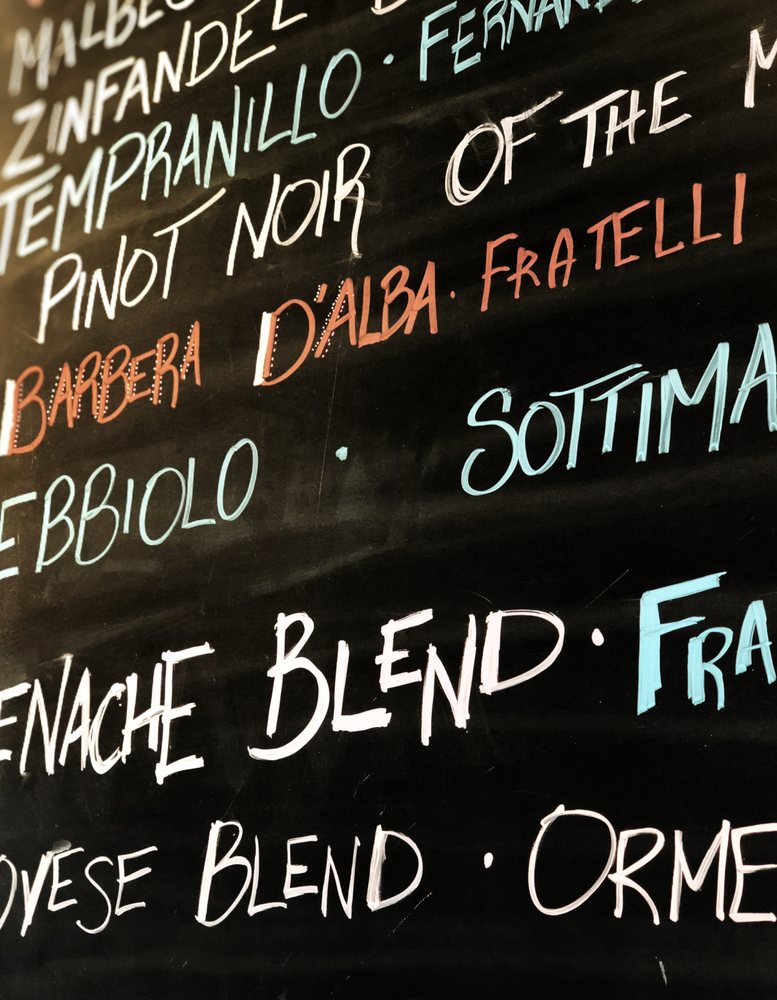 MALBEC
ZINFANDEL
TEMPRANILLO · FERNAN
PINOT NOIR OF THE M
BARBERA D'ALBA · FRATELLI
EBBIOLO · SOTTIMA
ENACHE BLEND · FRA
OVESE BLEND · ORME